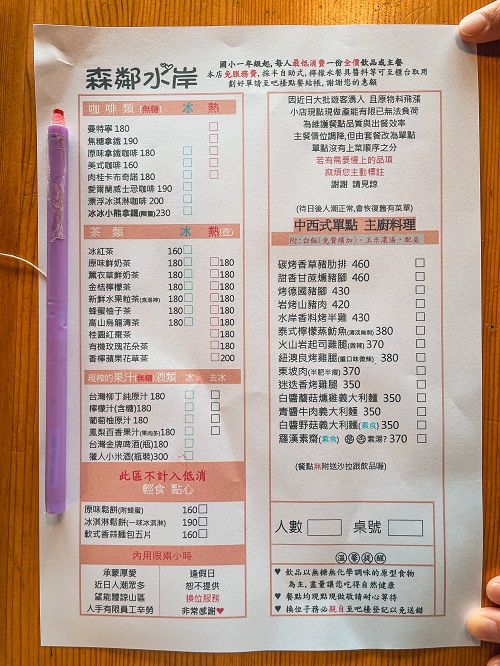 森鄰水岸
國小一年級起,每人最低消費一份全價飲品或主餐
本店免服務費,採半自助式,檸檬水餐具醬料等可至櫃台取用
劃好單請至吧檯點餐結帳,謝謝您的惠顧
咖啡類(無糖) 冰 熱
曼特寧 180
焦糖拿鐵 190
原味拿鐵咖啡 180
美式咖啡 160
肉桂卡布奇諾 180
愛爾蘭威士忌咖啡 190
漂浮冰淇淋咖啡 200
冰冰小熊拿鐵(限量)230
茶類 冰 熱(壺)
冰紅茶 160
原味鮮奶茶 180 180
薰衣草鮮奶茶 180 180
金桔檸檬茶 180 180
新鮮水果粒茶(喜洛神) 180 180
蜂蜜柚子茶 180 180
高山烏龍清茶 180 180
桂圓紅棗茶 180
有機玫瑰花朵茶 180
香檸蘋果花草茶 200
現榨的果汁(無糖)酒類 冰 去冰
台灣柳丁純原汁 180
檸檬汁(含糖)180
葡萄柚原汁 180
鳳梨百香果汁(果肉多)180
台灣金牌啤酒(瓶)180
獵人小米酒(瓶裝)300
此區不計入低消
輕食 點心
原味鬆餅(附蜂蜜) 160
冰淇淋鬆餅(一球冰淇淋) 190
軟式香蒜麵包五片 160
內用限兩小時
承蒙厚愛
近日人潮眾多
望能體諒山區
人手有限員工辛勞
逢假日
恕不提供
換位服務
非常感謝♥
因近日大批遊客湧入 且原物料飛漲
小店現點現做產能有限已無法負荷
為維護餐點品質與出餐效率
主餐價位調降,但由套餐改為單點
單點沒有上菜順序之分
若有需要慢上的品項
麻煩您主動標註
謝謝 請見諒
(待日後人潮正常,會恢復舊有菜單)
中西式單點 主廚料理
附:白飯(免費續加)、玉米濃湯、配菜
碳烤香草豬肋排 460
甜香甘蔗燻豬腳 460
烤德國豬腳 430
岩烤山豬肉 420
水岸香料烤半雞 430
泰式檸檬蒸魴魚(清淡無刺) 380
火山岩起司雞腿(微辣) 370
紐澳良烤雞腿(重口味微辣) 380
東坡肉(半肥半瘦) 370
迷迭香烤雞腿 350
白醬蘑菇燻雞義大利麵 350
青醬牛肉義大利麵 350
白醬野菇義大利麵(素食) 350
羅漢素齋(素食) 素湯? 370
(餐點無附送沙拉跟飲品喔)
人數 桌號
溫馨提醒
♥ 飲品以無糖無化學調味的原型食物
為主,盡量讓您吃得自然健康
♥ 餐點均現點現做敬請耐心等待
♥ 換位子務必親自至吧檯登記以免送錯